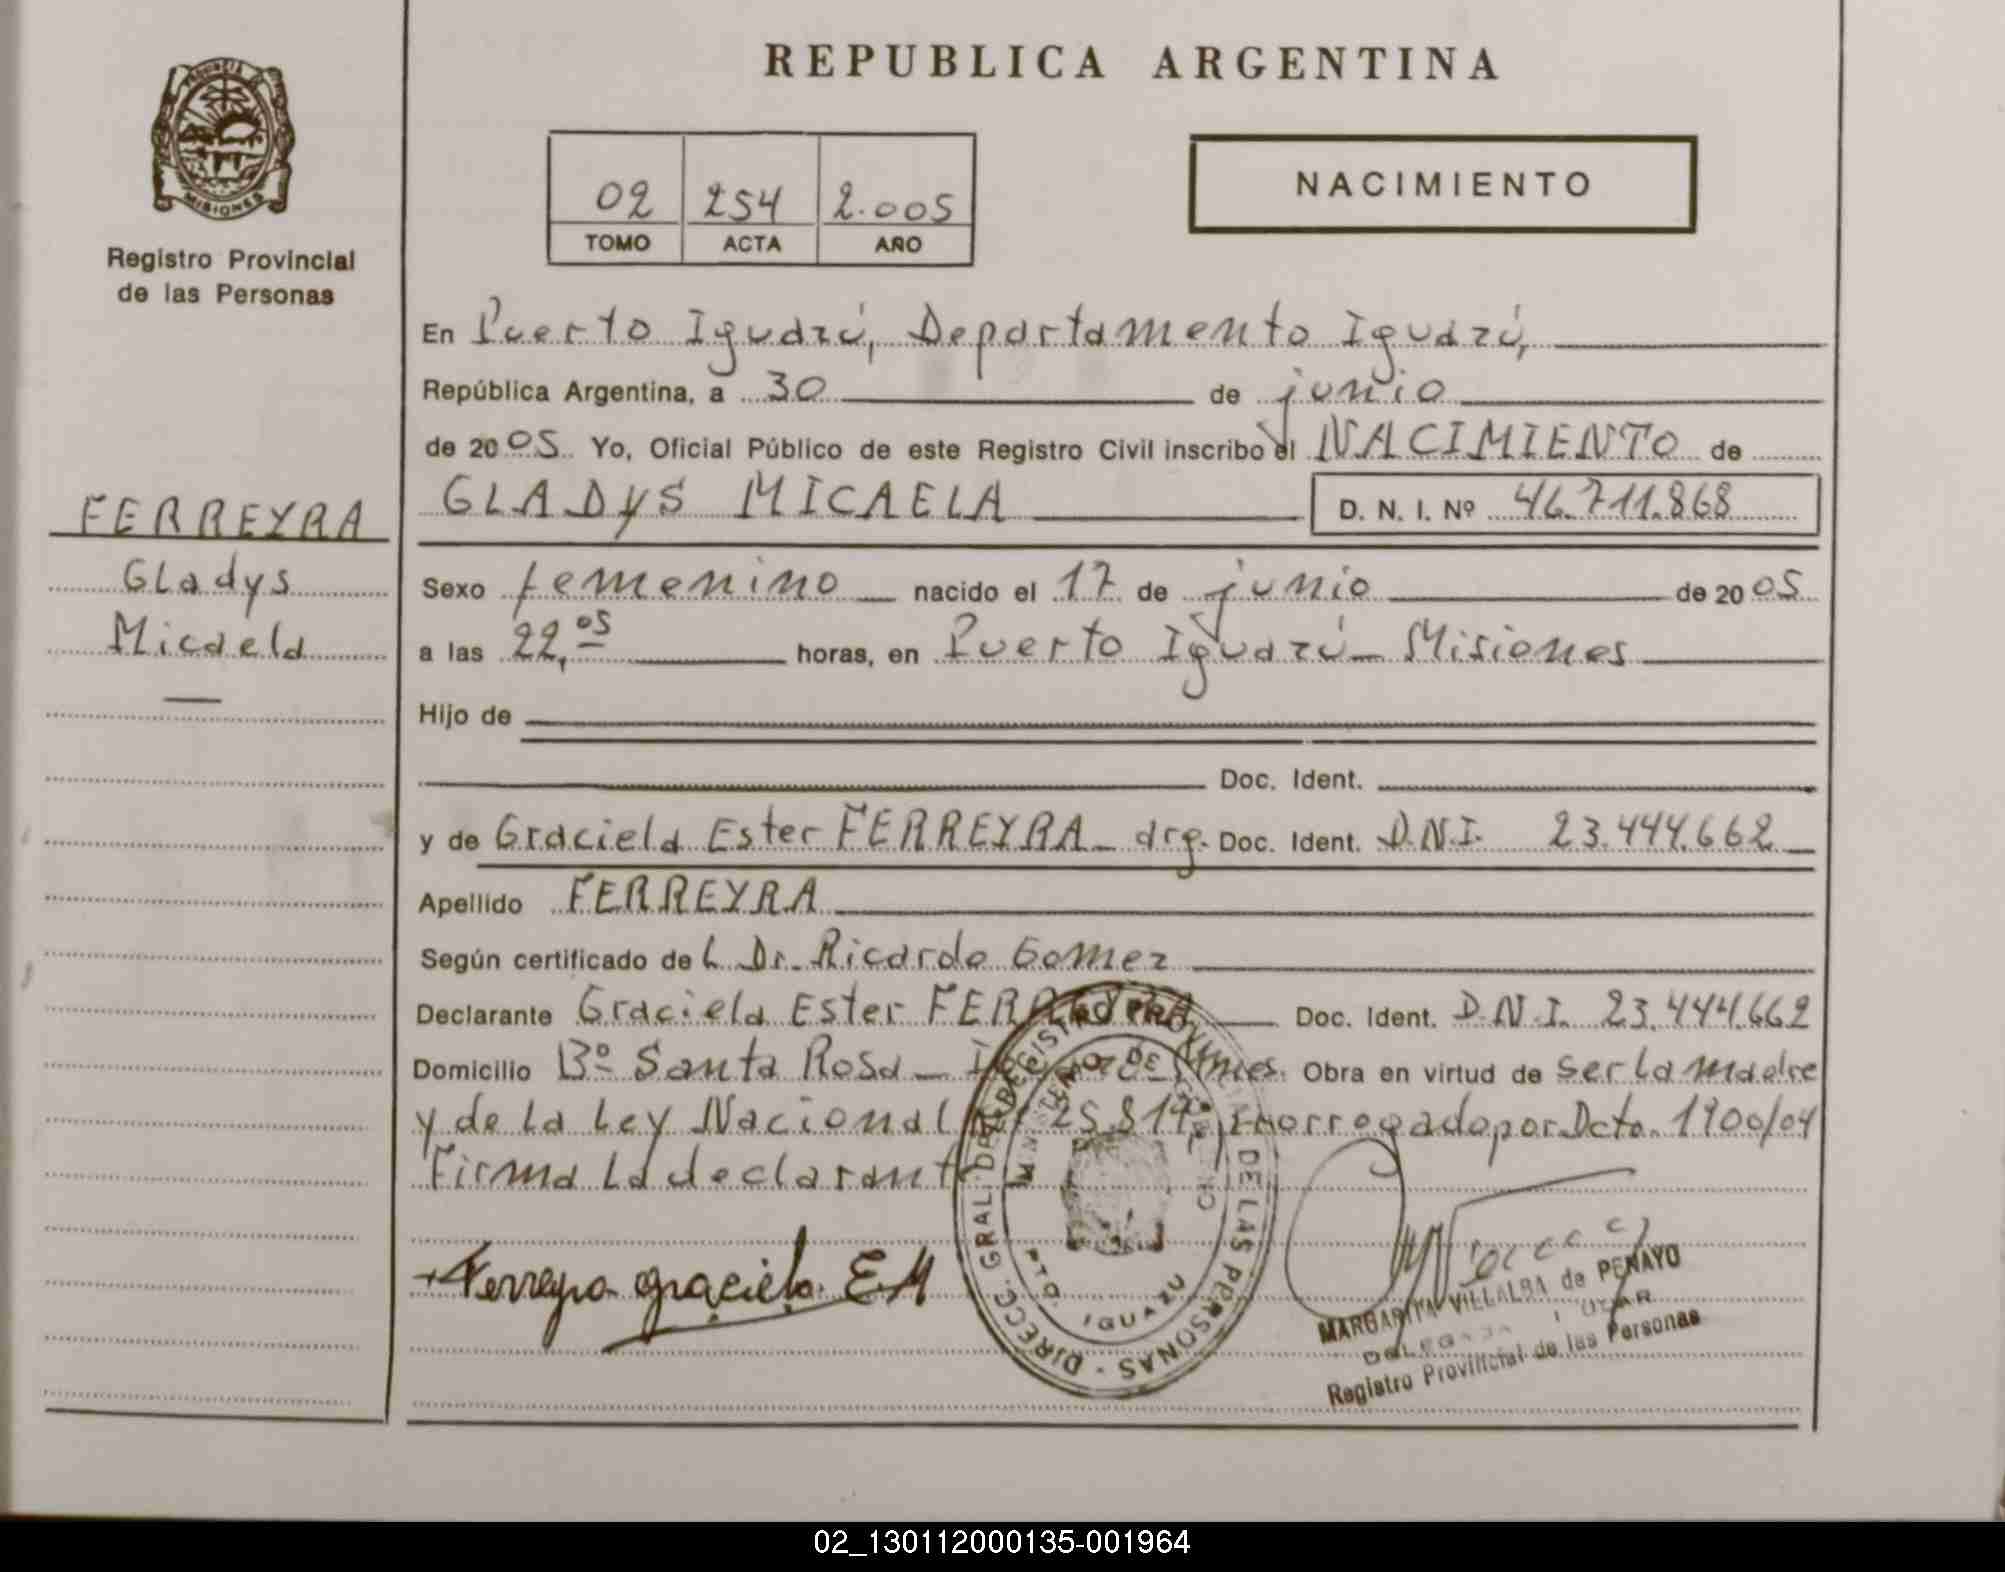 REPUBLICA ARGENTINA
PROVINCIA DE
MISIONES
Registro Provincial
de las Personas
02 254 2.005
TOMO ACTA AÑO
NACIMIENTO
En Puerto Iguazú, Departamento Iguazú,
República Argentina, a 30 de junio
de 2005 Yo, Oficial Público de este Registro Civil inscribo el NACIMIENTO de
GLADYS MICAELA D. N. I. Nº 46.711.868
FERREYRA
Gladys
Micaela
Sexo femenino nacido el 17 de junio de 2005
a las 22,05 horas, en Puerto Iguazú - Misiones
Hijo de
Doc. Ident.
y de Graciela Ester FERREYRA - arg. Doc. Ident. D.N.I. 23.444.662
Apellido FERREYRA
Según certificado del Dr. Ricardo Gomez
Declarante Graciela Ester FERREYRA Doc. Ident. D.N.I. 23.444.662
Domicilio Bº Santa Rosa - Mnes. Obra en virtud de ser la madre
y de la Ley Nacional 25.819, Prorrogado por Dcto. 1900/04
Firma la declarante
Ferreyra graciela E M
DIRECC. GRAL. DEL REGISTRO PROVINCIAL DE LAS PERSONAS -
MINISTERIO DE GOBIERNO
PTO. IGUAZU
MARGARITA VILLALBA de PENAYO
Registro Provincial de las Personas
02_130112000135-001964